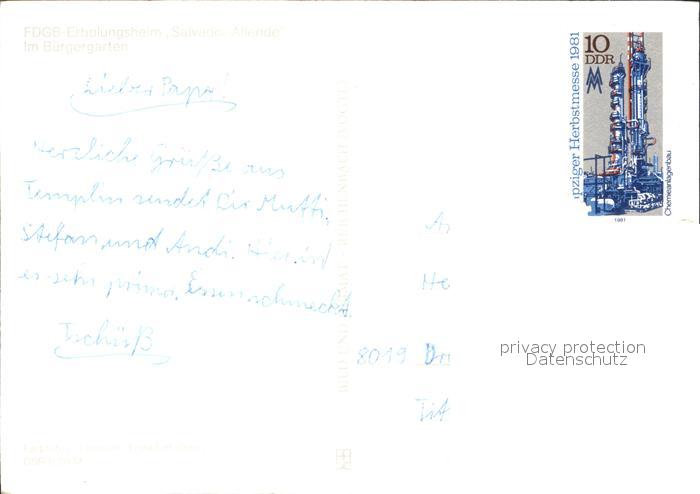 FDGB-Erholungsheim „Salvador Allende“
Im Bürgergarten
Lieber Papa!
Herzliche Grüße aus
Templin sendet Dir Mutti,
Stefan und Andi. Hier ist
es sehr prima. Essen schmeckt.
Tschüß
BILD UND HEIMAT REICHENBACH (VOGTL)
10
DDR
pziger Herbstmesse 1981
Chemieanlagenbau
1981
An
He
8019 Dr
Tit
privacy protection
Datenschutz